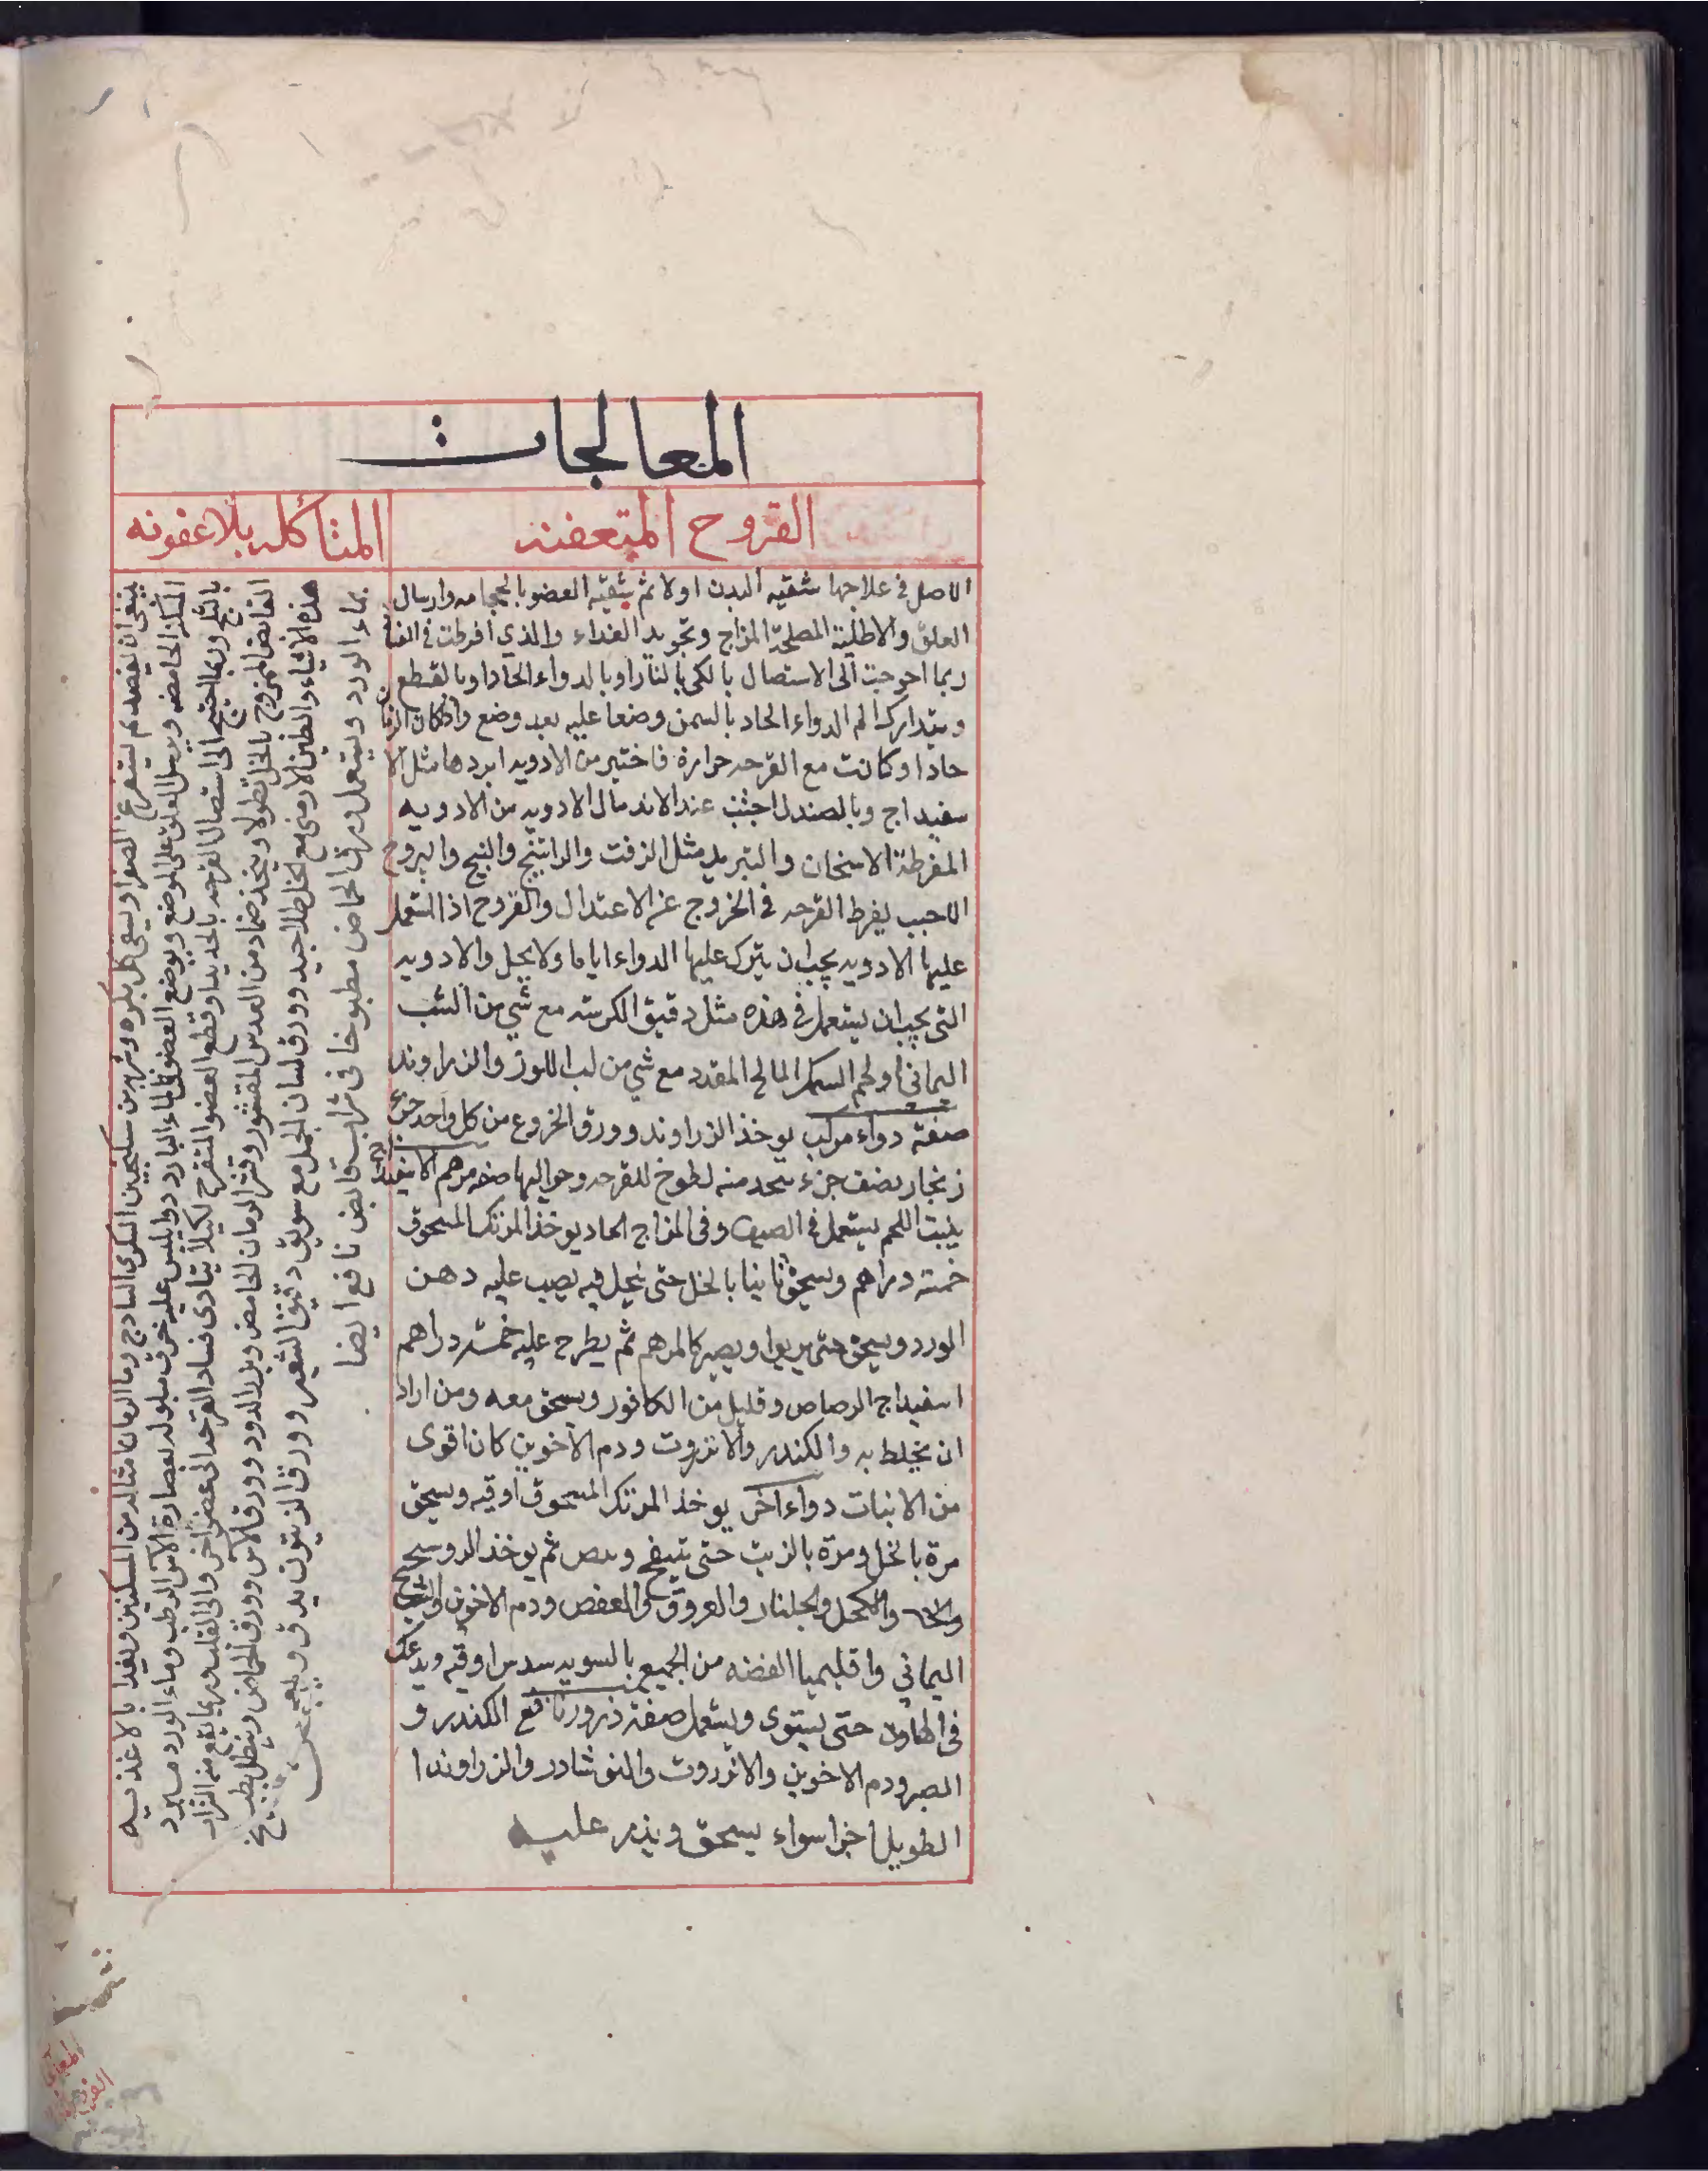 المعالجات
القروح المتعفنه
الاصل في علاجها تنقيه البدن اولا ثم تنقيه العضو بالحجامه وارسال
العلق والاطلية المصلحة المزاج وتجويد الغذاء والذي افرطت في
ربما احوجت الى الاستصال بالكي بالنار او بالدواء الحاد او بالقطع
ويتدارك الم الدواء الحاد بالسمن وضعا عليه بعد وضع واذا كان الزمان
حادا وكانت مع القرحه حرارة فاختير من الادويه ابردها مثل الا
سفيداج وبالصندل اجتنب عند الاندمال الادويه من الادويه
المفرطة الاسخان والتبريد مثل الزفت والراتينج والبنج واليبروح
لا يفرط القرحه في الخروج عن الاعتدال والقروح اذا استعمل
عليها الادويه يجب ان يترك عليها الدواء اياما ولا يحل والادويه
التي يجب ان يستعمل في هذه مثل دقيق الكرسنه مع شي من الشب
اليماني او لحم السمك المالح المقدد مع شي من لب اللوز والزراوند
صفة دواء مركب يوخذ الزراوند وورق الخروع من كل واحد جزء
زنجار نصف جزء يتخد منه لطوخ للقرحه وحواليها صفه مرهم
ينبت اللحم يستعمل في الصيف وفي المزاج الحاد يوخذ المرتك المسحوق
خمسة دراهم ويسحق ثانيا بالخل حتى ينحل فيه يصب عليه دهن
الورد ويسحق حتى يربوا ويصير كالمرهم ثم يطرح عليه خمسة دراهم
اسفيداج الرصاص وقليل من الكافور ويسحق معه ومن اراد
ان يخلط به والكندر والانزروت ودم الاخوين كان اقوى
من الانبات دواء اخر يوخذ المرتك المسحوق اوقيه ويسحق
مرة بالخل ومرة بالزيت حتى ينتفخ ثم يوخذ
والكحل والجلنار والعروق والعفص ودم الاخوين والشب
اليماني واقليميا الفضه من الجميع بالسويه سدس اوقيه
في الهاون حتى يستوى ويستعمل صفة ذرور نافع الكندر و
الصبر ودم الاخوين والانزروت والنوشادر والزراوند ا
الطويل اجزا سواء يسحق ويذر عليه
المتأكله بلا عفونه
ينبغي ان يفصد ثم يستفرغ الصفرا ويسقى كل بكره شربه من سكنجبين السكرى الساذج وما الرمان مثالا من السكنجبين ويغذا بالاغذيه
الحامضه ويرسل العلق على الموضع ويوضع العضو في الماء البارد او يلبس عليه خرق مبلوله بعصارة الاس الرطب وماء الورد مبرد
بالثلج وربما احتيج الى استصال القرحه بالحديد او قطع العضو المتقرح لكيلا يتادى فساد القرحه الى عضو اخر والى القلب وربما يقع منه
القابض الممزوج بالخل نطولا ويتخذ ضماد من العدس المقشور وقشر الرمان الحامض وبزر الورد وورق الاس وورق الحماض وينطل بطبيخ
هذه الاشياء والطين الارمني مع الخل طلا جيد وورق لسان الحمل مع سويق دقيق الشعير وورق الزيتون يدق ويعجن
بماء الورد ويستعمل ورق الحماض مطبوخا في شراب قابض نافع ايضا